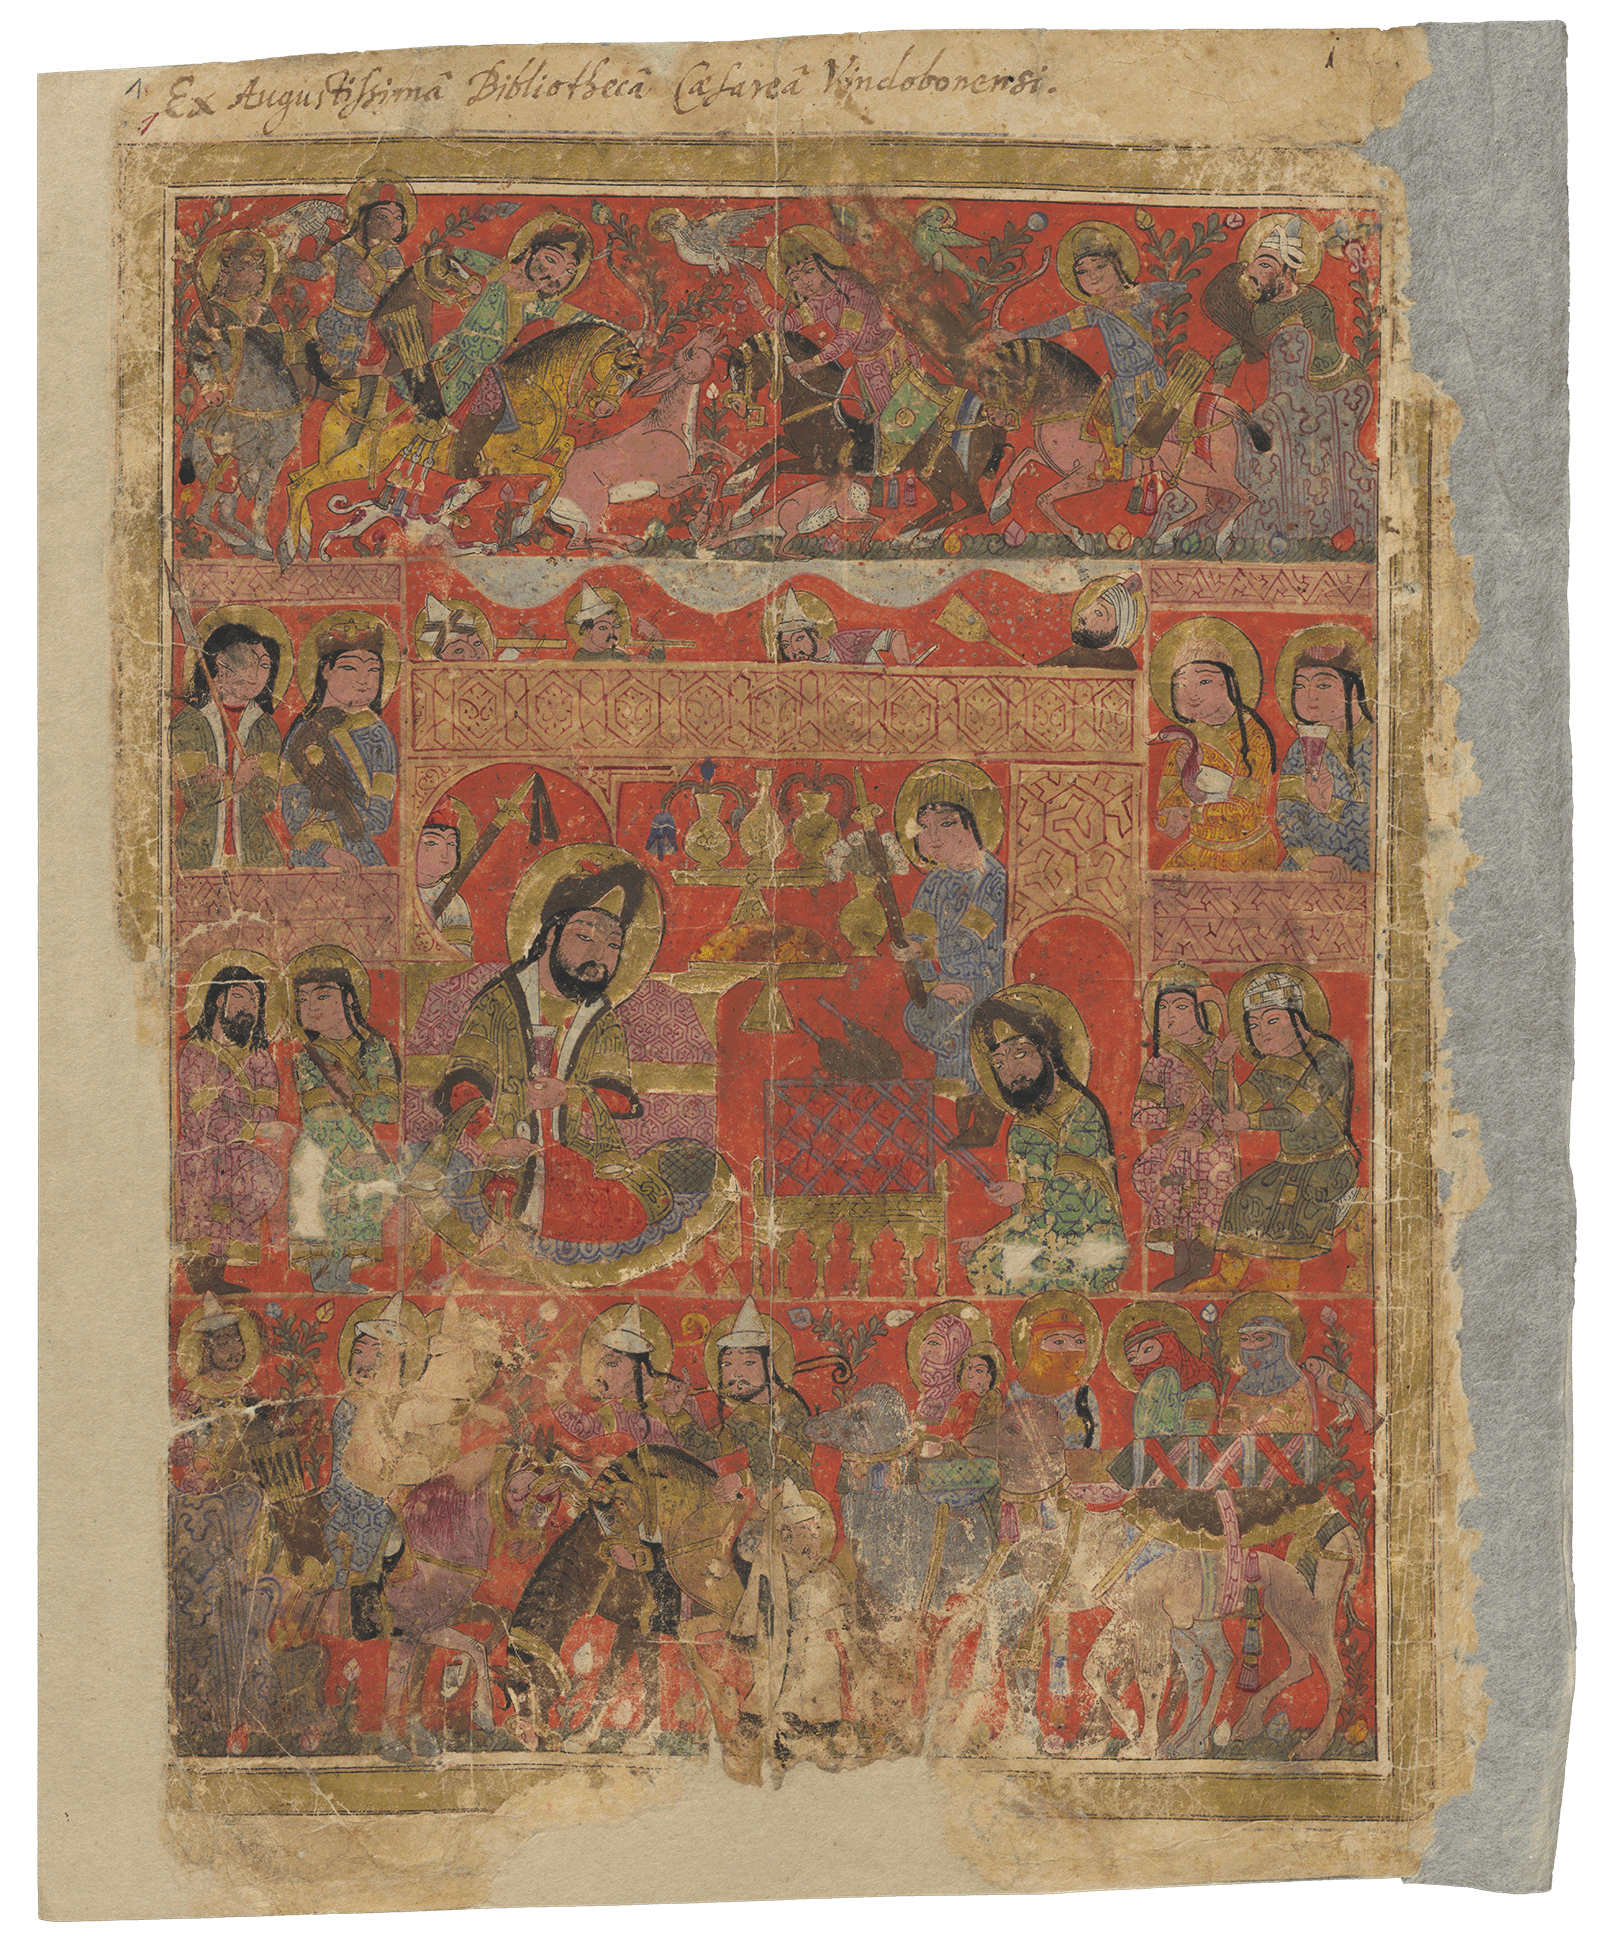 1. Ex Augustissimâ Bibliothecâ Cæsareâ Vindobonensi. 1
1